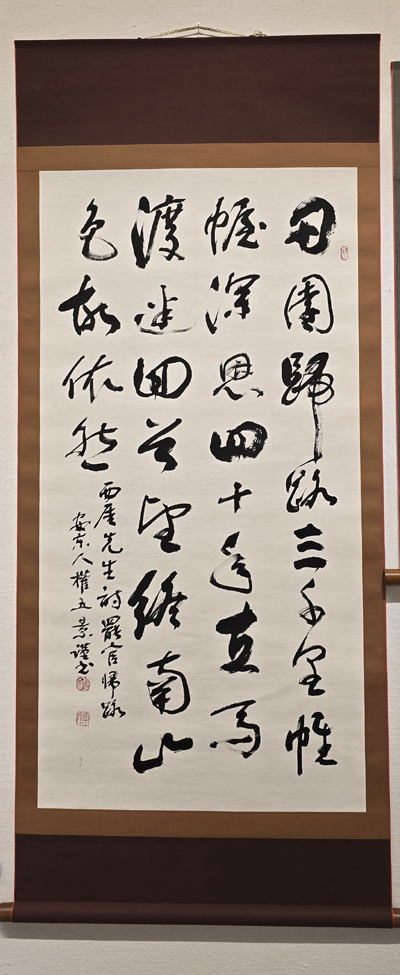 田園歸路三千里帷
幄深恩四十年立馬
渡迷回首望終南山
色故依然
西厓先生詩罷官歸路
安東人權五景謹書